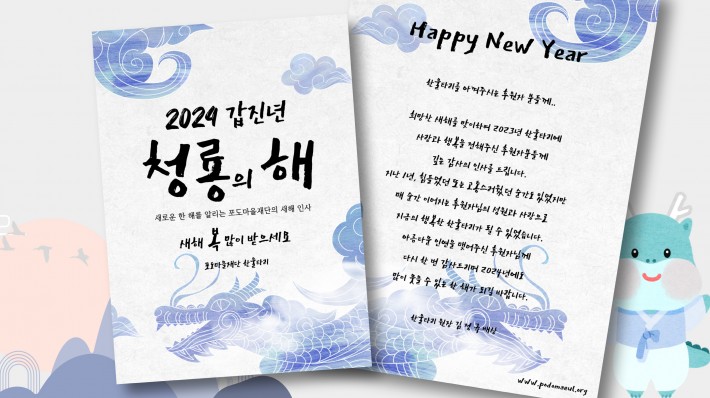 2024 갑진년
청룡의 해
새로운 한 해를 알리는 포도마을재단의 새해 인사
새해 복 많이 받으세요
포도마을재단 한울타리
Happy New Year
한울타리를 아껴주시는 후원자 분들께..
희망찬 새해를 맞이하여 2023년 한울타리에
사랑과 행복을 전해주신 후원자분들께
깊은 감사의 인사를 드립니다.
지난 1년, 힘들었던 또는 고통스러웠던 순간도 있었지만
매 순간 이어지는 후원자님의 성원과 사랑으로
지금의 행복한 한울타리가 될 수 있었습니다.
아름다운 인연을 맺어주신 후원자님께
다시 한 번 감사드리며 2024년에도
많이 웃을 수 있는 한 해가 되길 바랍니다.
한울타리 원장 김 배상
www.podomaeul.org